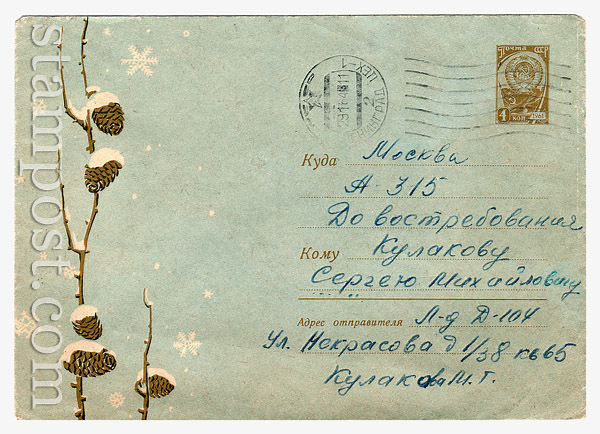 stampost.com
почта СССР
4 коп 1961
Куда Москва
А-315
До востребования
Кому Кулакову
Сергею Михайловичу
Адрес отправителя Л-д Д-104
Ул. Некрасова д 1/38 кв 65
Кулакова М. Г.